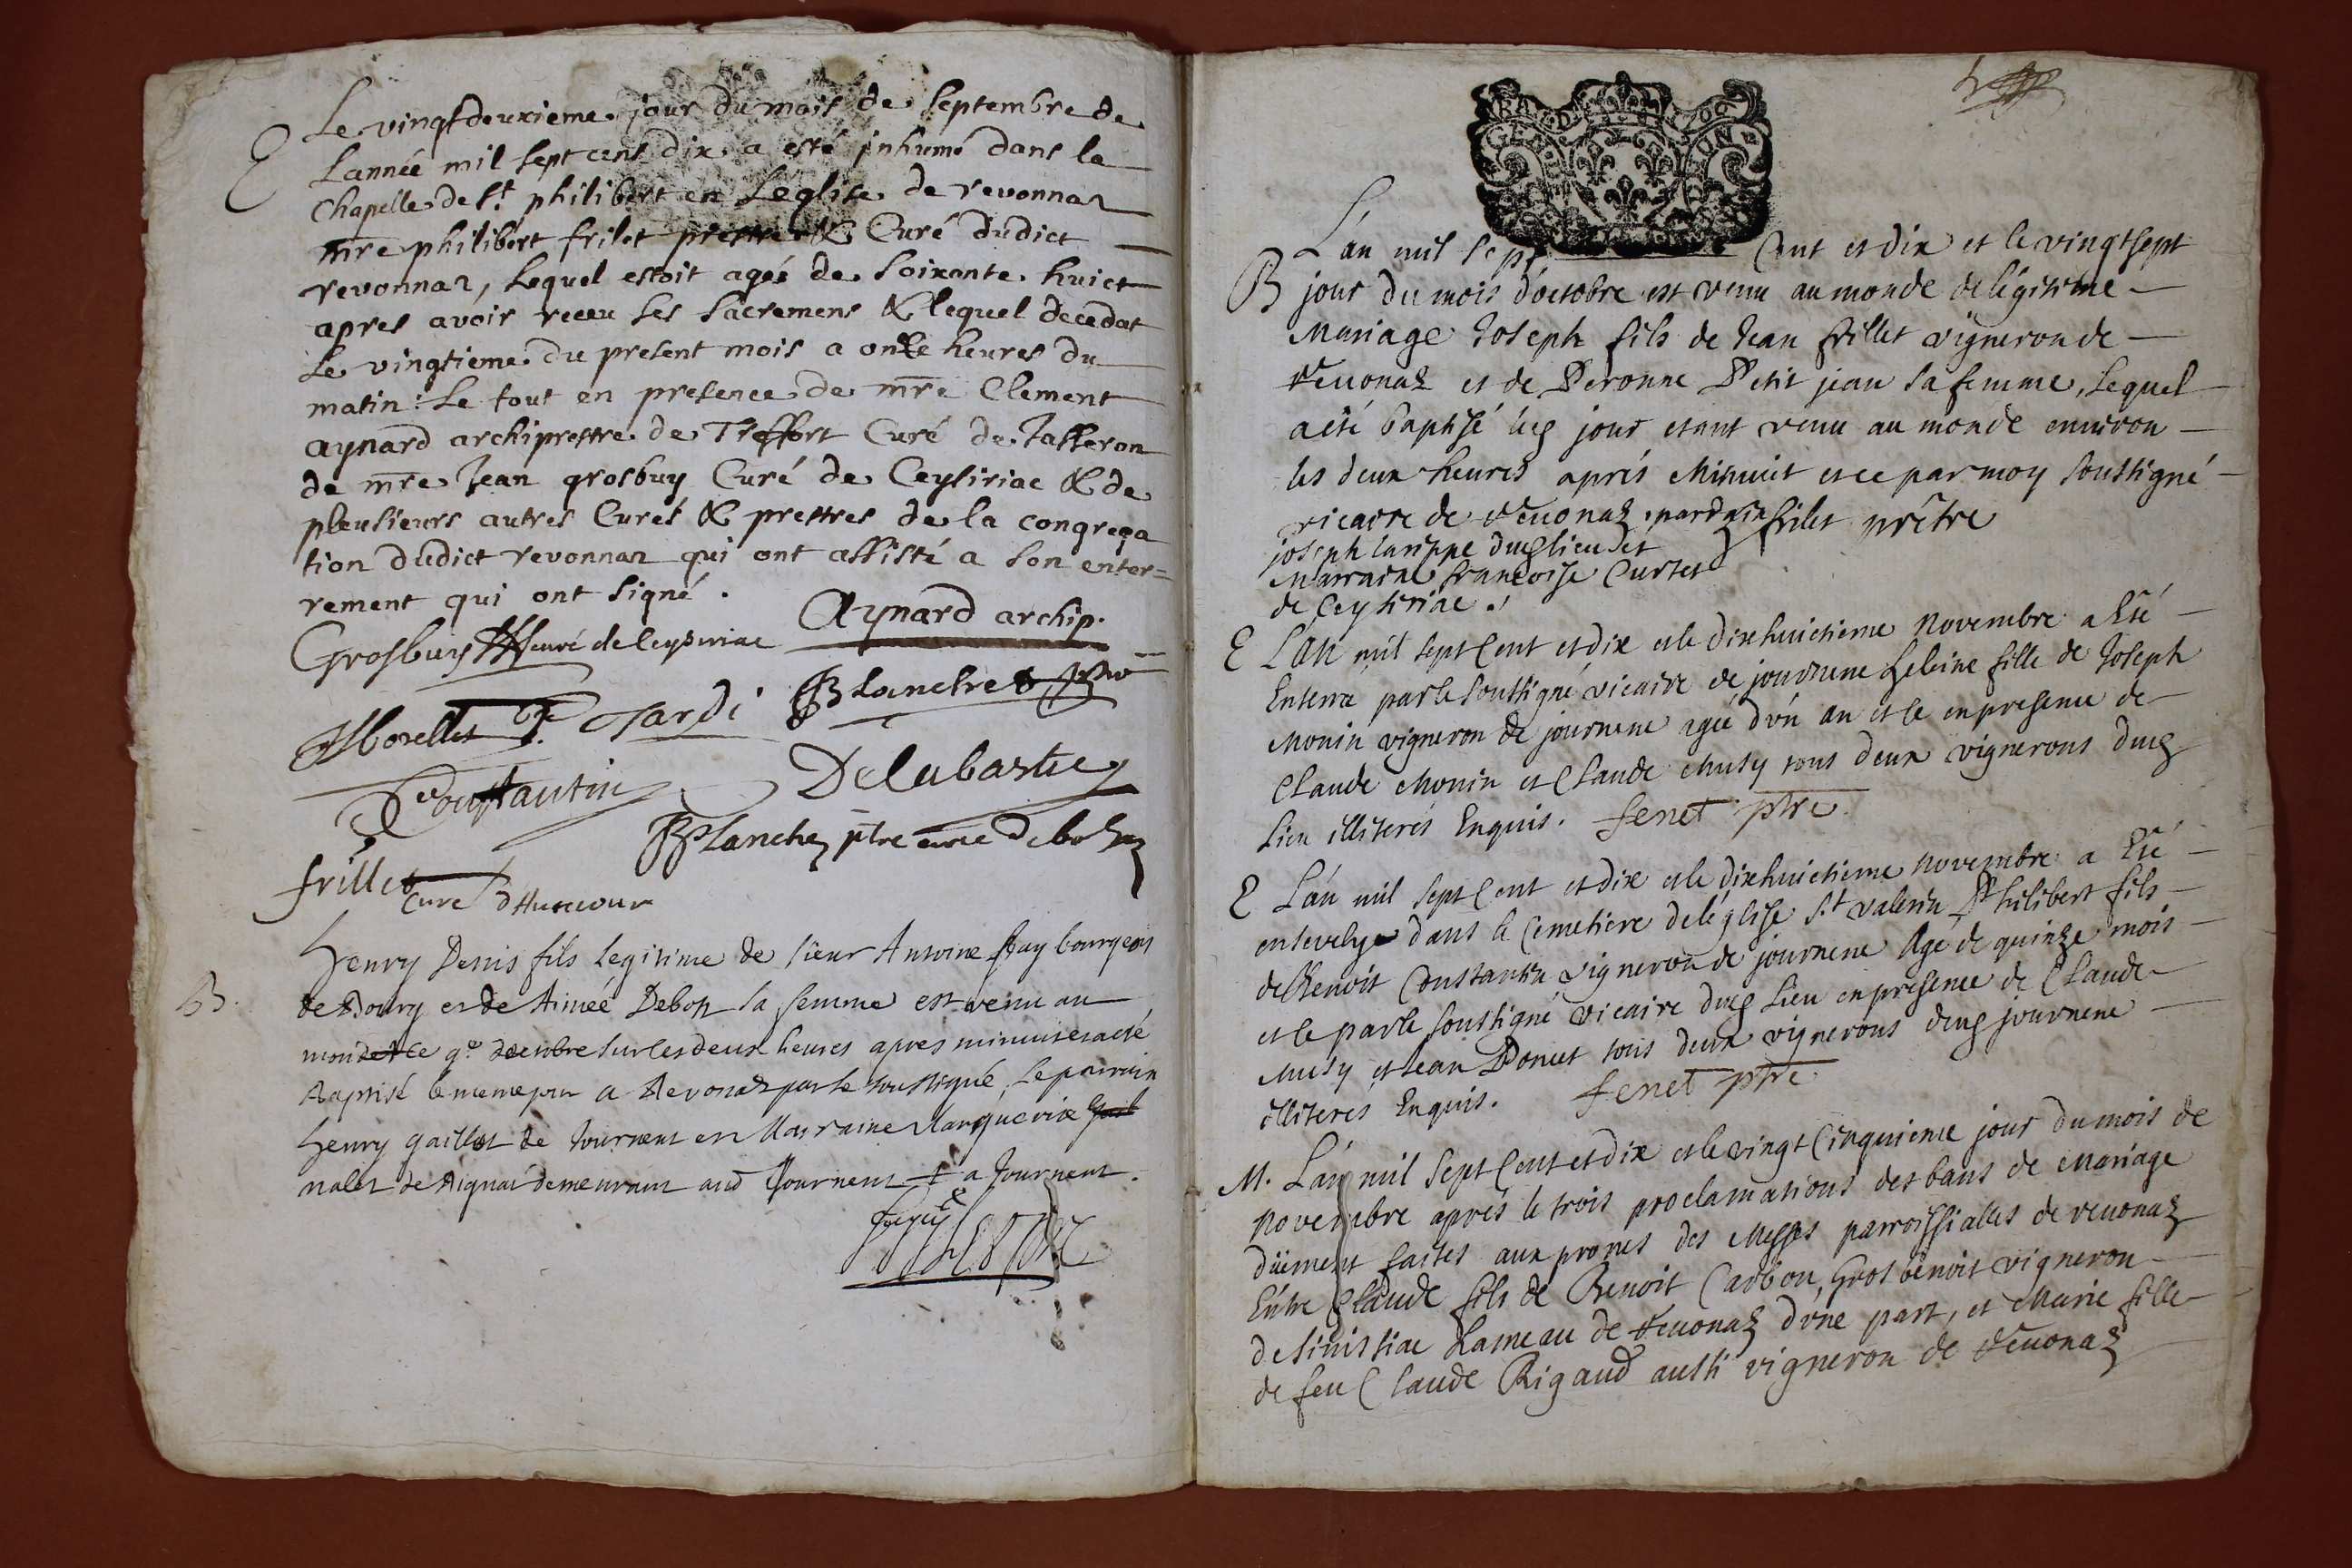 E Le vingtdeuxieme jour du mois de Septembre de
Lannée mil sept cens dix a esté jnhumé dans la
Chapelle de St philibert en Léglise de revonnaz
mre philibert frilet prestre & Curé dudict
revonnaz, Lequel estoit agée de Soixante huict
apres avoir receu ses Sacremens & lequel decedat
Le vingtieme du present mois a onze heures du
matin: Le tout en presence de mre Clement
aynard archiprestre de Treffort Curé de Jasseron
de mre Jean grosbuy Curé de Ceysiriac & de
pleusieurs autres Curés & prestres de la congrega
tion dudict revonnaz qui ont assisté a son enter=
rement qui ont signé.
Aynard archip.
Grosbuy curé de Ceyseriac
Morellet Tardi Blanchet
Constantin Delabastie
Blanche ptre curé de
frillet
Curé
B. Henry Denis fils legitime de sieur Antoine Guy bourgeois
de Bourg et de Aimée Debost sa femme est venu au
monde le 9e decembre sur les deux heures apres minuit et a esté
Baptisé le meme jour a Revonaz par le soussigné, Le parrain
henry gaillot de Journens et Marraine Marguerite
nalet de demeurant aud Journens a Journens.
L'an mil sept Cent et dix et le vingtsept
B jour du mois d'octobre est venu au monde de légitime
Mariage Joseph fils de Jean frillet vigneron de
Revonaz et de Peronne Petit jean sa femme, Lequel
a été baptisé led jour etant venu au monde environ
les deux heures aprés Minuit et ce par moy soussigné
vicaire de Revonaz. pardain frilet prêtre
joseph larippe dud lieu et
Marraine francoise Curtet
de Ceysiriac.
E L'an mil sept Cent et dix et le dixhuictieme Novembre a Eté
Enterré par le soussigné vicaire de journene heleine fille de Joseph
Monin vigneron de journene agée d'vn an et ce en presence de
Claude Monin et Claude Musy tous deux vignerons dud
Lieu illiterés Enquis. fenet ptre
E L'an mil sept Cent et dix et le dixhuictieme Novembre a Eté
ensevely dans le Cemetiere de léglise St valerin Philibert fils
de Benoit Constantin vigneron de journene Agé de quinze mois
et ce par le soussigné vicaire dud Lieu en presence de Claude
Musy et Jean Poncet tous deux vignerons dud journene
illiteres Enquis. fenet ptre
M. L'an mil sept Cent et dix et le vingt Cinquieme jour du mois de
Novembre aprés le trois proclamations des bans de Mariage
düement faites aux prones des Messes parroissialles de revonaz
Entre Claude fils de Benoit Carbon, Gros benoit vigneron
de Sinissiac hameau de Revonaz d'vne part, et Marie fille
de feu Claude Rigaud aussi vigneron de Revonaz